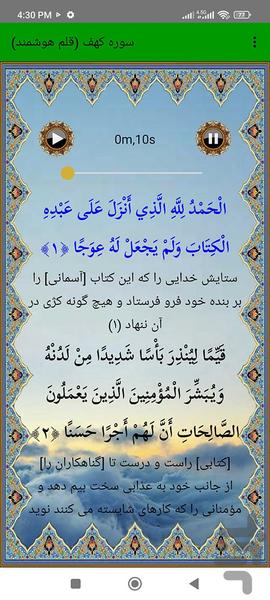 4:30 PM
سوره کهف (قلم هوشمند)
0m,10s
الْحَمْدُ لِلَّهِ الَّذِي أَنْزَلَ عَلَى عَبْدِهِ
الْكِتَابَ وَلَمْ يَجْعَلْ لَهُ عِوَجًا ﴿۱﴾
ستایش خدایی را که این کتاب [آسمانی] را
بر بنده خود فرو فرستاد و هیچ گونه کژی در
آن ننهاد (۱)
قَيِّمًا لِيُنْذِرَ بَأْسًا شَدِيدًا مِنْ لَدُنْهُ
وَيُبَشِّرَ الْمُؤْمِنِينَ الَّذِينَ يَعْمَلُونَ
الصَّالِحَاتِ أَنَّ لَهُمْ أَجْرًا حَسَنًا ﴿۲﴾
[کتابی] راست و درست تا [گناهکاران را]
از جانب خود به عذابی سخت بیم دهد و
مؤمنانی را که کارهای شایسته می کنند نوید